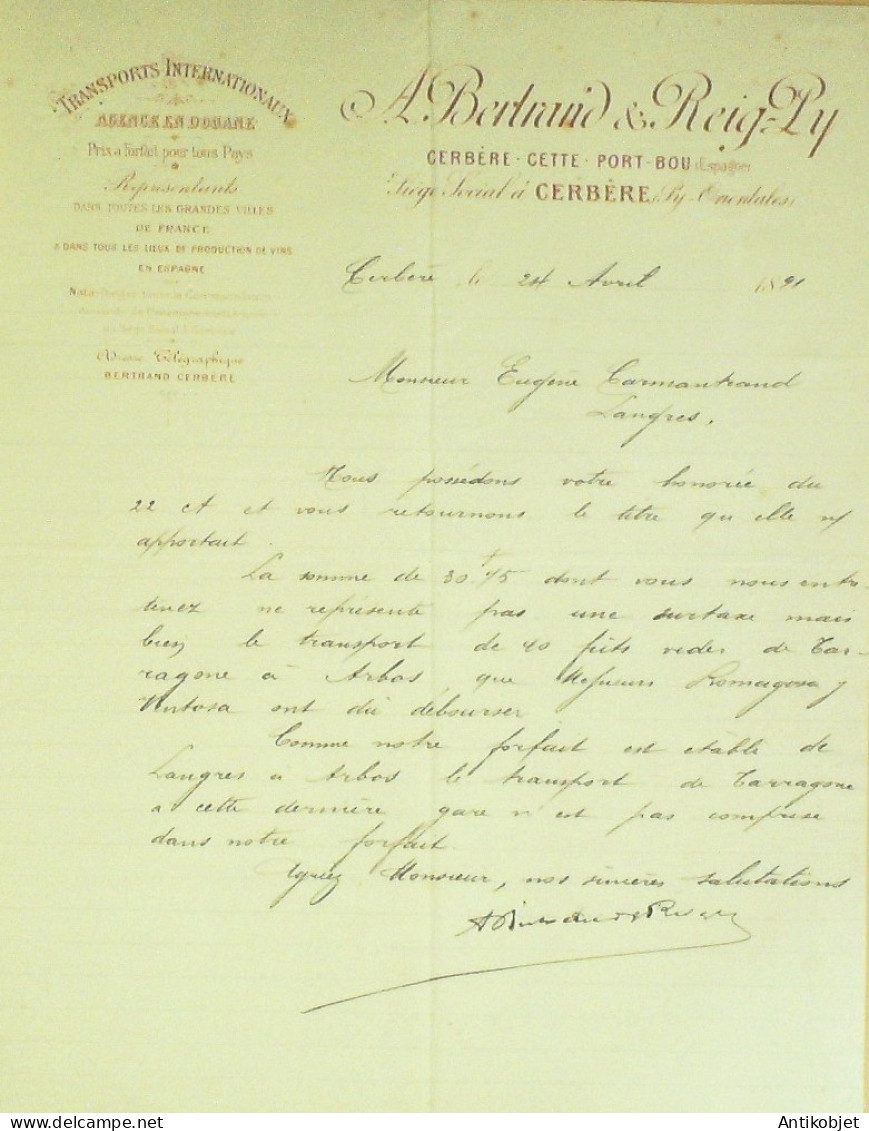 TRANSPORTS INTERNATIONAUX
AGENCE EN DOUANE
Prix à forfait pour tous Pays
Représentants
DANS TOUTES LES GRANDES VILLES
DE FRANCE
& DANS TOUS LES LIEUX DE PRODUCTION DE VINS
EN ESPAGNE
Nota
Adresse Télégraphique
BERTRAND CERBÈRE
A. Bertrand & Reig-Py
CERBÈRE - CETTE - PORT-BOU (Espagne)
Siège Social à CERBÈRE (Py-Orientales)
Cerbère le 24 Avril 1891
Monsieur Eugène Carmantrand
Langres.
Nous possédons votre honorée du
22 ct et vous retournons le titre qu elle n/
apportait.
La somme de 30f45 dont vous nous entre-
tenez ne représente pas une surtaxe mais
bien le transport de 40 fûts vides de Tar-
ragone à Arbos que Messieurs Romagosa y
Ventosa ont dû débourser
Comme notre forfait est établi de
Langres à Arbos le transport de Tarragone
à cette dernière gare n'est pas comprise
dans notre forfait.
Agréez Monsieur, nos sincères salutations
Antikobjet